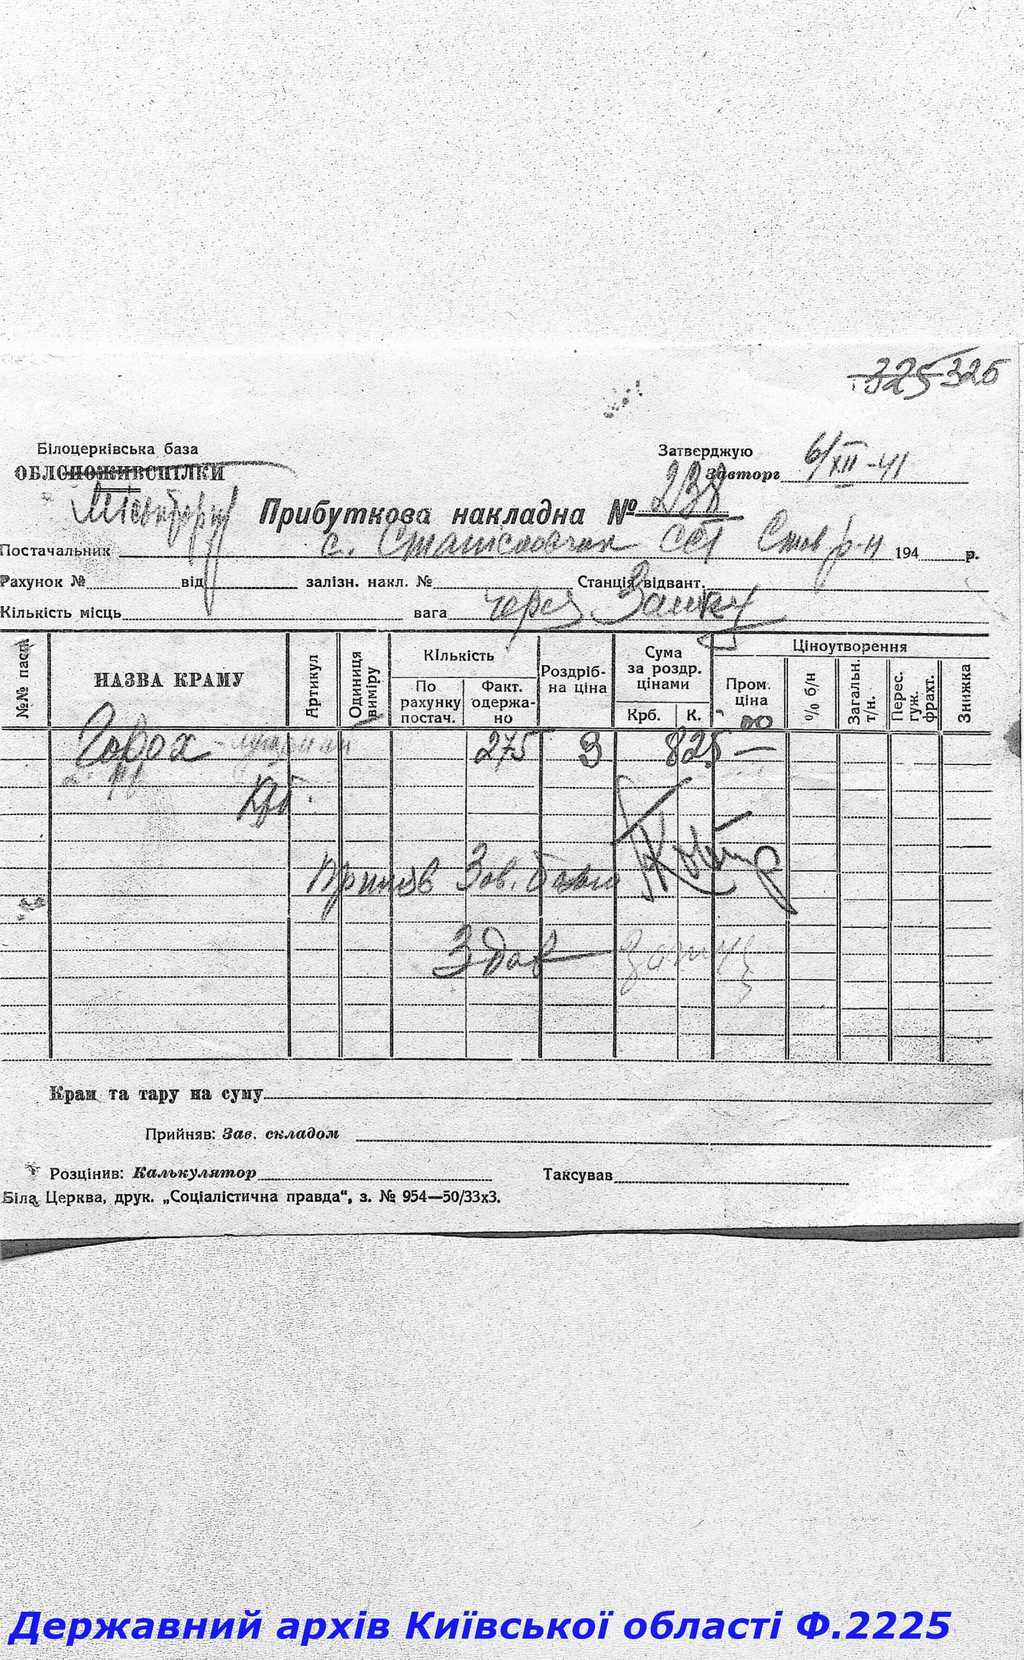 325 326
Білоцерківська база
ОБЛСПОЖИВСПІЛКИ
Затверджую
Завторг 6/XII-41
Міськторг
Прибуткова накладна № 238
Постачальник с. Станіславчик ССТ Став р-н 194 р.
Рахунок № від залізн. накл. № Станція відвант.
Кількість місць вага через Заяць
№№ паск.
НАЗВА КРАМУ
Артикул
Одиниця виміру
Кількість
По рахунку постач.
Факт. одержано
Роздрібна ціна
Сума за роздр. цінами
Крб.
К.
Ціноутворення
Пром. ціна
% б/н
Загальн. т/н.
Перес. гуж. фрахт.
Знижка
Горох 275 3 825 —
Крб.
Прийняв Зав. базою
Здав
Крам та тару на суму
Прийняв: Зав. складом
Розцінив: Калькулятор Таксував
Біла Церква, друк. „Соціалістична правда“, з. № 954—50/33х3.
Державний архів Київської області Ф.2225